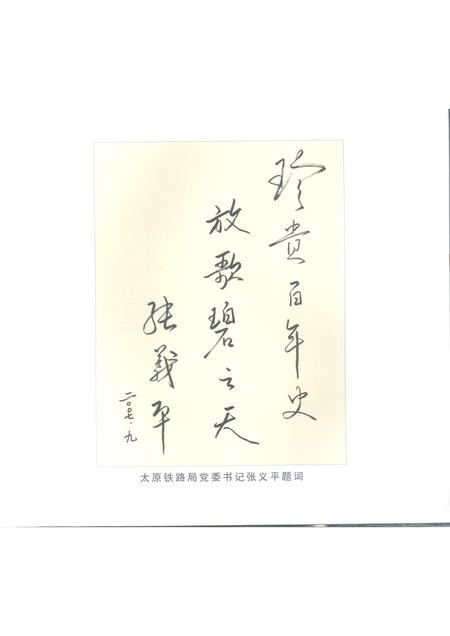 珍贵百年史
放歌碧云天
张義平
二〇〇七·九
太原铁路局党委书记张义平题词